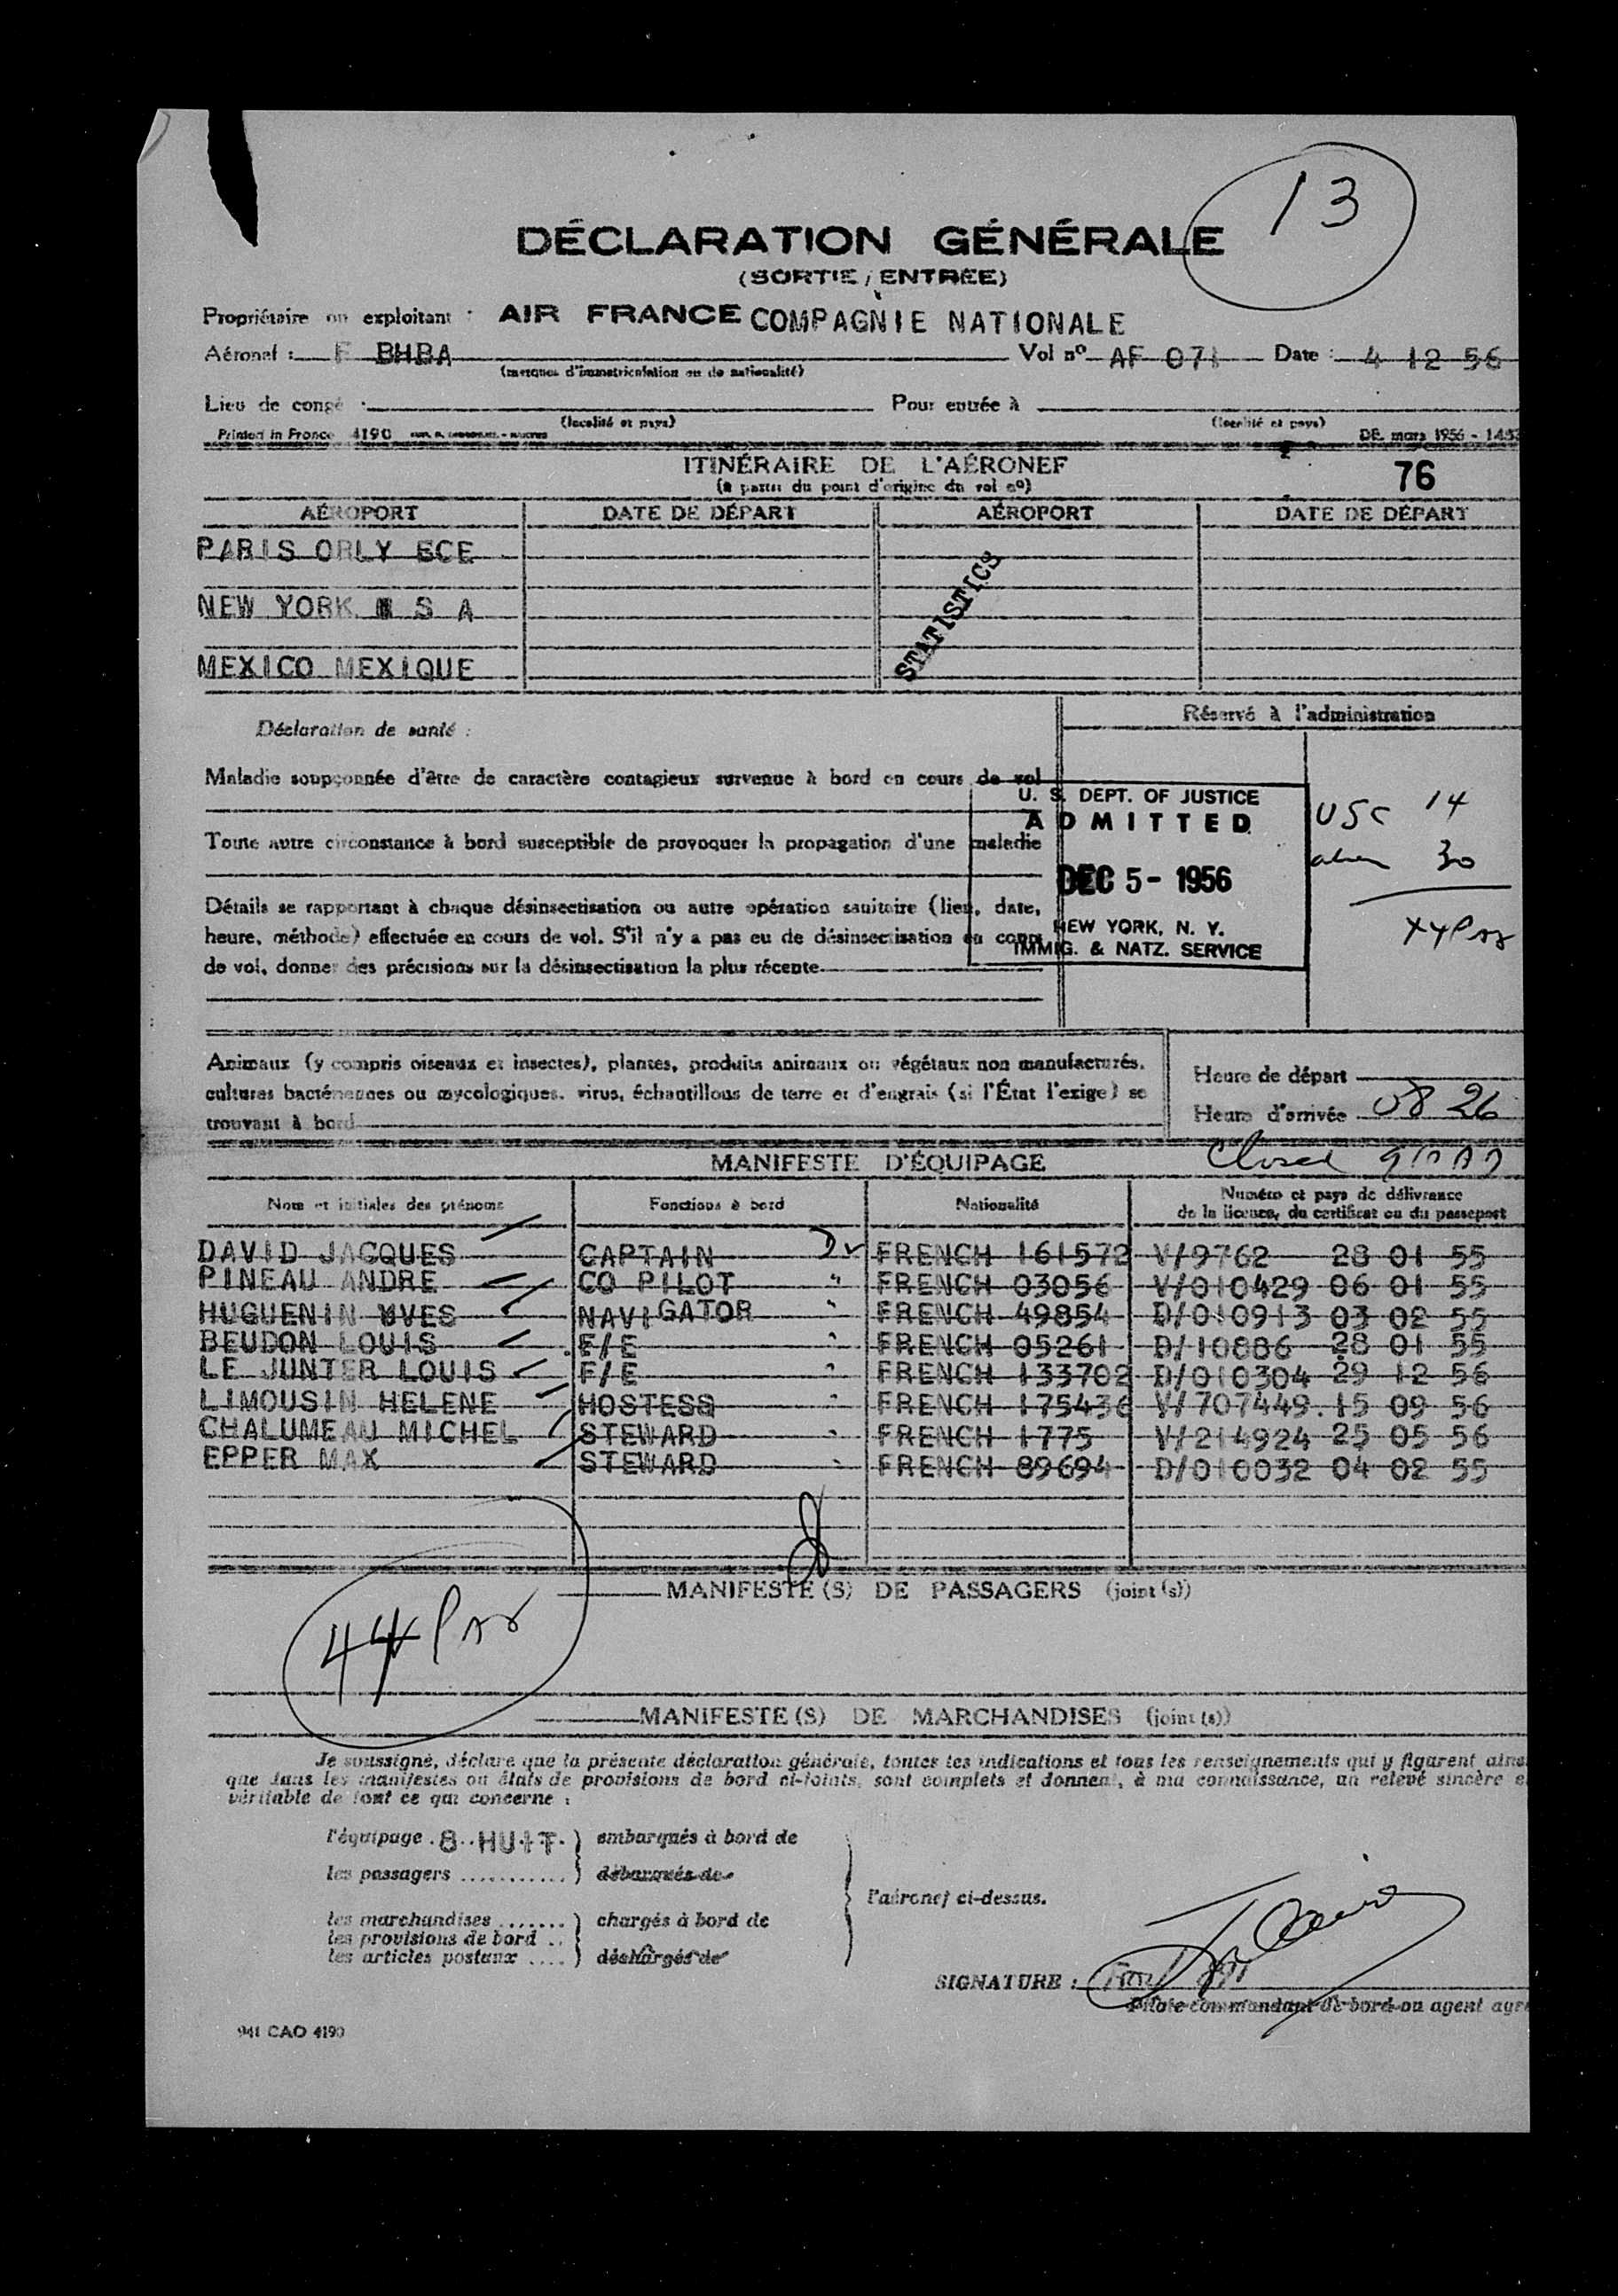 13
DÉCLARATION GÉNÉRALE
(SORTIE / ENTRÉE)
Propriétaire ou exploitant : AIR FRANCE COMPAGNIE NATIONALE
Aéronef : F BHBA Vol nº AF 071 Date : 4 12 56
(marques d'immatriculation ou de nationalité)
Lieu de congé : Pour entrée à
(localité et pays) (localité et pays)
Printed in France 4190 DE. mars 1956 - 145
ITINÉRAIRE DE L'AÉRONEF
(à partir du point d'origine du vol nº) 76
AÉROPORT DATE DE DÉPART AÉROPORT DATE DE DÉPART
PARIS ORLY ECE
NEW YORK U S A
STATISTICS
MEXICO MEXIQUE
Réservé à l'administration
Déclaration de santé :
Maladie soupçonnée d'être de caractère contagieux survenue à bord en cours de vol
U. S. DEPT. OF JUSTICE
ADMITTED
DEC 5 - 1956
NEW YORK, N. Y.
IMMIG. & NATZ. SERVICE
USC 14
alien 30
Toute autre circonstance à bord susceptible de provoquer la propagation d'une maladie
Détails se rapportant à chaque désinsectisation ou autre opération sanitaire (lieu, date,
heure, méthode) effectuée en cours de vol. S'il n'y a pas eu de désinsectisation en cours
de vol, donner des précisions sur la désinsectisation la plus récente
Animaux (y compris oiseaux et insectes), plantes, produits animaux ou végétaux non manufacturés,
cultures bactériennes ou mycologiques, virus, échantillons de terre et d'engrais (si l'État l'exige) se
trouvant à bord
Heure de départ
Heure d'arrivée 08 26
Closed
MANIFESTE D'ÉQUIPAGE
Nom et initiales des prénoms Fonctions à bord Nationalité Numéro et pays de délivrance
de la licence, du certificat ou du passeport
DAVID JACQUES CAPTAIN FRENCH 161572 V/9762 28 01 55
PINEAU ANDRE CO PILOT " FRENCH 03056 V/010429 06 01 55
HUGUENIN YVES NAVIGATOR " FRENCH 49854 D/010913 03 02 55
BEUDON LOUIS F/E " FRENCH 05261 D/10886 28 01 55
LE JUNTER LOUIS F/E " FRENCH 133702 D/010304 29 12 56
LIMOUSIN HELENE HOSTESS " FRENCH 175436 V/707449 15 09 56
CHALUMEAU MICHEL STEWARD " FRENCH 1775 V/214924 25 05 56
EPPER MAX STEWARD " FRENCH 89694 D/010032 04 02 55
8
MANIFESTE(S) DE PASSAGERS (joint(s))
44 Pax
MANIFESTE(S) DE MARCHANDISES (joint(s))
Je soussigné, déclare que la présente déclaration générale, toutes les indications et tous les renseignements qui y figurent ains
que dans les manifestes ou états de provisions de bord ci-joints, sont complets et donnent, à ma connaissance, un relevé sincère e
véritable de tout ce qui concerne :
l'équipage . 8 . HUIT . ) embarqués à bord de
les passagers ........... ) débarqués de
l'aéronef ci-dessus.
les marchandises ....... ) chargés à bord de
les provisions de bord ..
les articles postaux .... ) déchargés de
SIGNATURE :
Pilote commandant de bord ou agent agré
941 CAO 4190